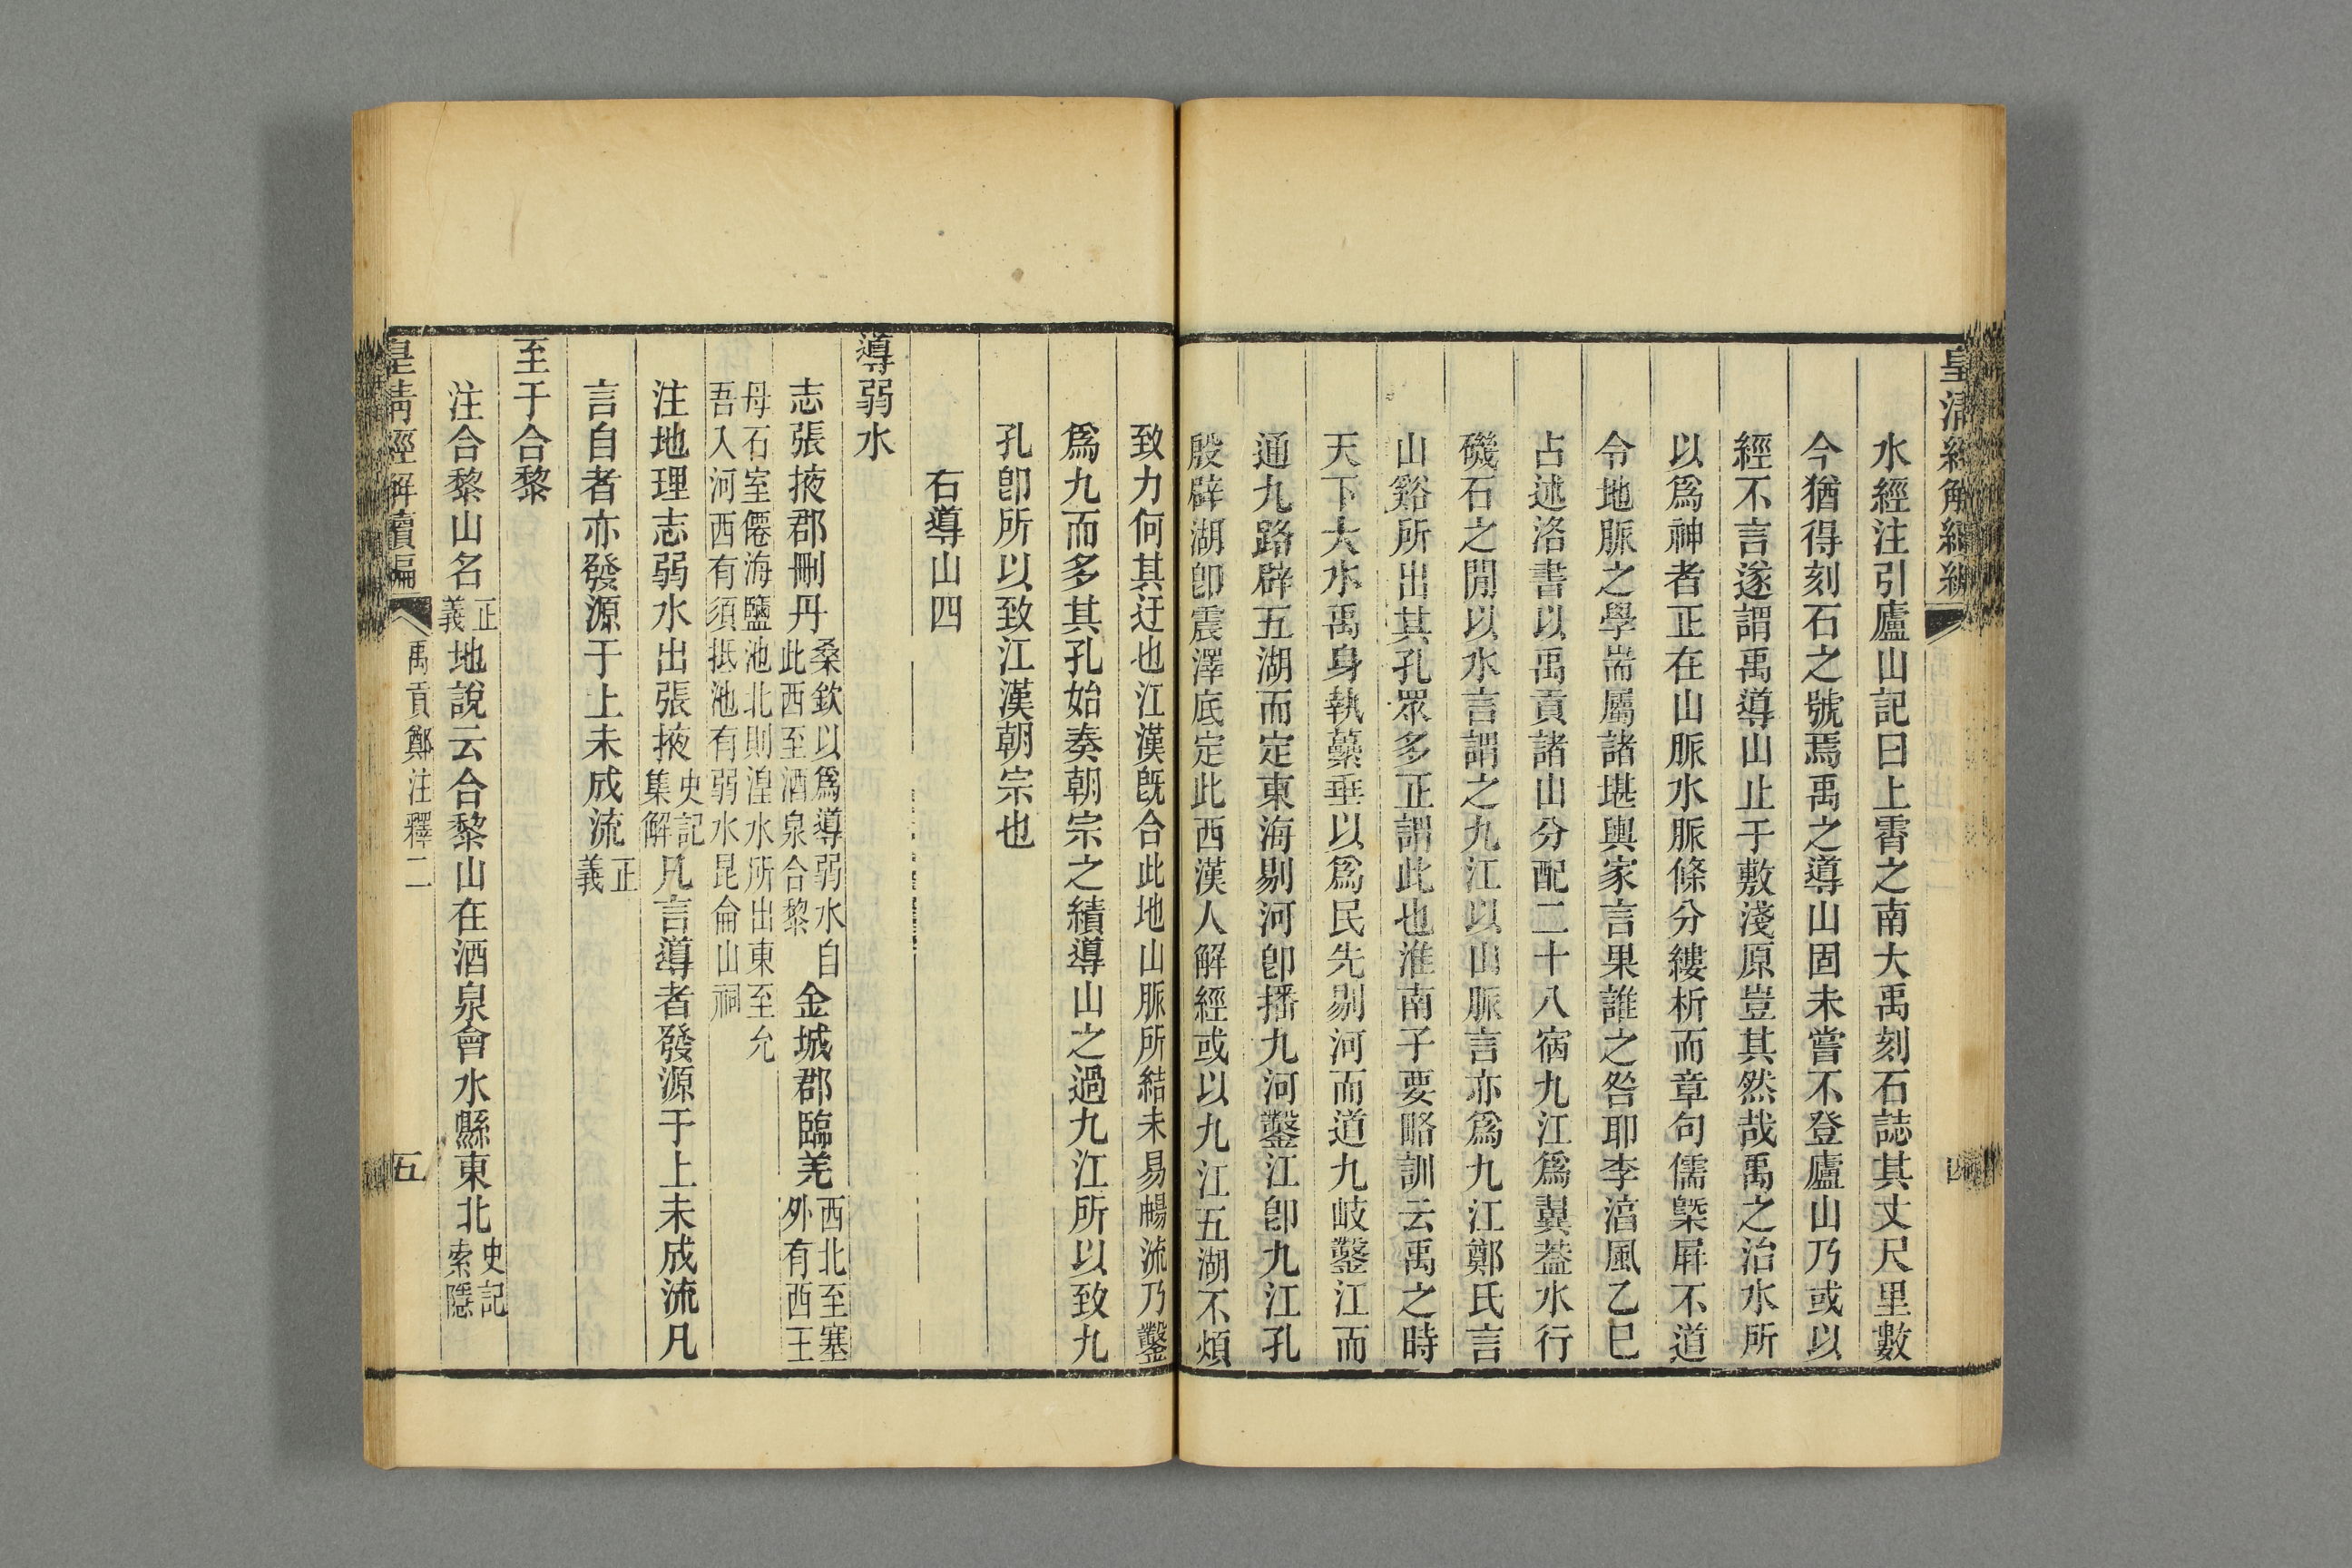 皇清經解續編
四
水經注引廬山記曰上霄之南大禹刻石誌其丈尺里數
今猶得刻石之號焉禹之導山固未嘗不登廬山乃或以
經不言遂謂禹導山止于敷淺原豈其然哉禹之治水所
以爲神者正在山脈水脈條分縷析而章句儒槩屏不道
令地脈之學耑屬諸堪輿家言果誰之咎耶李湻風乙巳
占述洛書以禹貢諸山分配二十八宿九江爲翼葢水行
磯石之閒以水言謂之九江以山脈言亦爲九江鄭氏言
山谿所出其孔眾多正謂此也淮南子要略訓云禹之時
天下大水禹身執虆垂以爲民先剔河而道九岐鑿江而
通九路辟五湖而定東海剔河卽播九河鑿江卽九江孔
殷辟湖卽震澤底定此西漢人解經或以九江五湖不煩
致力何其迂也江漢旣合此地山脈所結未易暢流乃鑿
爲九而多其孔始奏朝宗之績導山之過九江所以致九
孔卽所以致江漢朝宗也
右導山四
導弱水
志張掖郡刪丹桑欽以爲導弱水自此西至酒泉合黎金城郡臨羌西北至塞外有西王
母石室僊海鹽池北則湟水所出東至允吾入河西有須抵池有弱水昆侖山祠
注地理志弱水出張掖史記集解凡言導者發源于上未成流凡
言自者亦發源于上未成流正義
至于合黎
注合黎山名正義地說云合黎山在酒泉會水縣東北史記索隱
皇淸經解續編
禹貢鄭注釋二
五